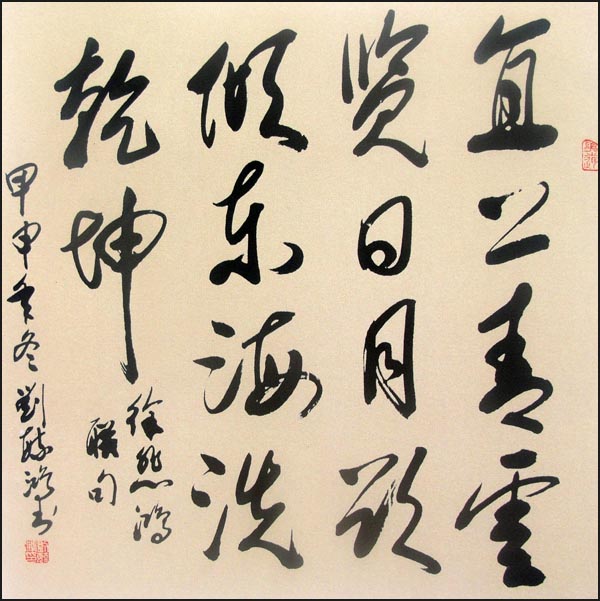 直上青雲
览日月欲
倾东海洗
乾坤
徐悲鸿
联句
甲申年冬劉懿鴻书